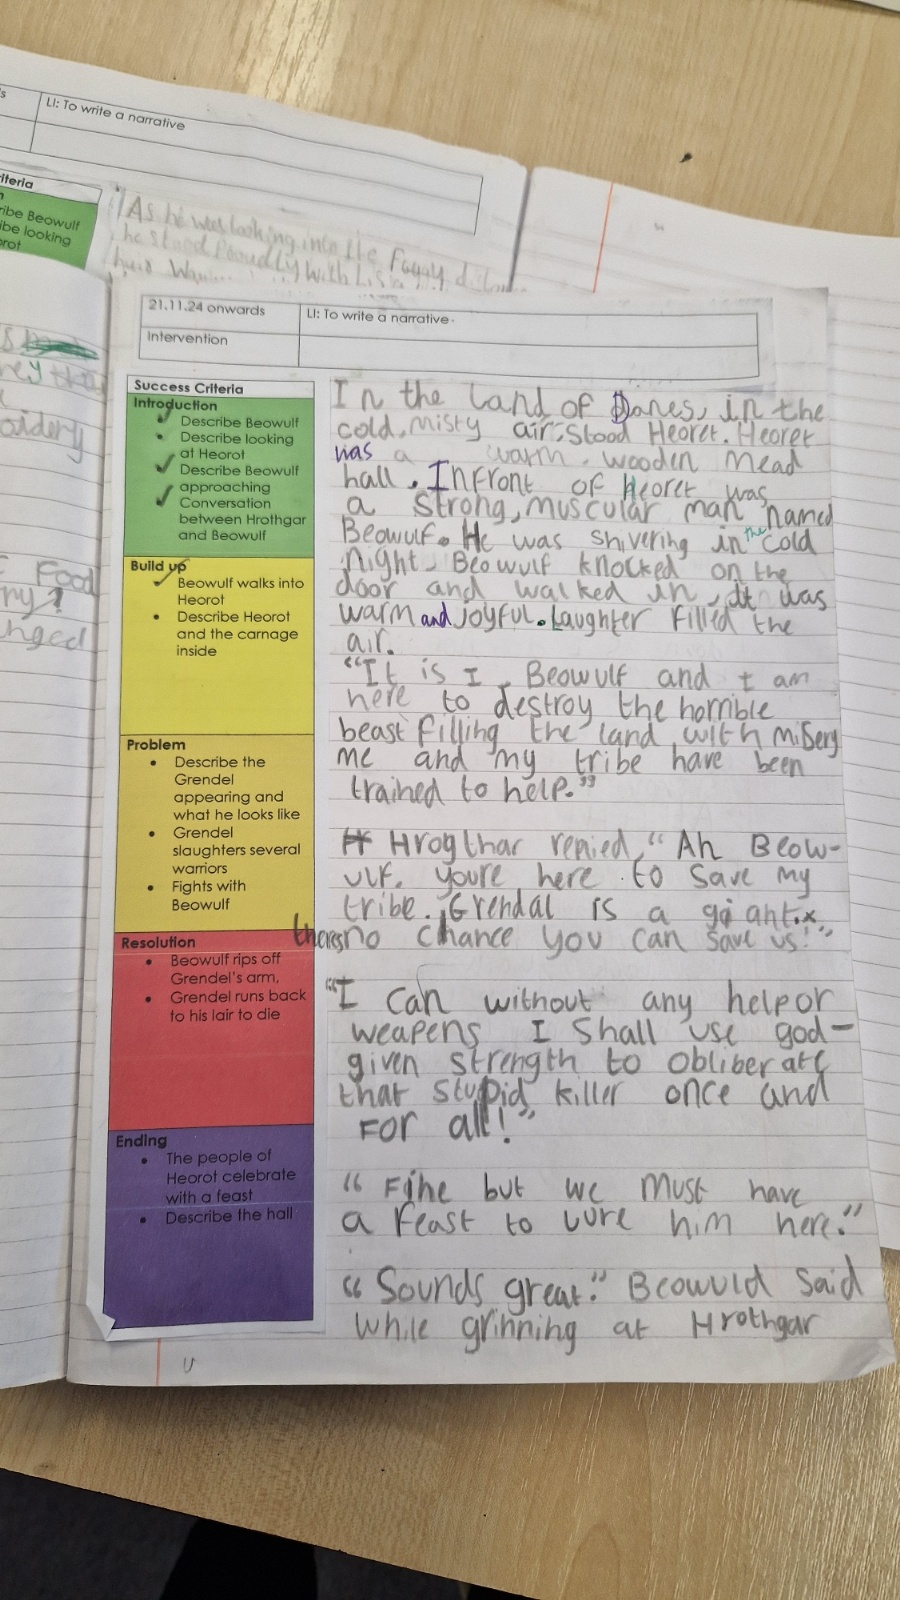 LI: To write a narrative
iteria
ribe Beowulf
ibe looking
orot
As he was looking into the Foggy
he stood Proudly with
21.11.24 onwards
LI: To write a narrative.
Intervention
Success Criteria
Introduction
Describe Beowulf
Describe looking
at Heorot
Describe Beowulf
approaching
Conversation
between Hrothgar
and Beowulf
Build up
Beowulf walks into
Heorot
Describe Heorot
and the carnage
inside
Problem
Describe the
Grendel
appearing and
what he looks like
Grendel
slaughters several
warriors
Fights with
Beowulf
Resolution
Beowulf rips off
Grendel's arm,
Grendel runs back
to his lair to die
Ending
The people of
Heorot celebrate
with a feast
Describe the hall
In the Land of Danes, in the
cold, misty air, stood Heoret. Heoret
was a warm, wooden mead
hall. Infront of Heoret was
a strong, muscular man named
Beowulf. He was shivering in the cold
night. Beowulf knocked on the
door and walked in, It was
warm and joyful. Laughter filled the
air.
"It is I Beowulf and I am
here to destroy the horrible
beast filling the land with misery
me and my tribe have been
trained to help."
Hrogthar replied, "Ah Beow-
ulf, youre here to save my
tribe. Grendal is a giant.
theres no chance you can save us!"
"I can without any help or
weapens I shall use god-
given strength to obliberate
that stupid killer once and
For all!"
"Fine but we must have
a feast to lure him here."
"Sounds great." Beowuld said
while grinning at Hrothgar
Food